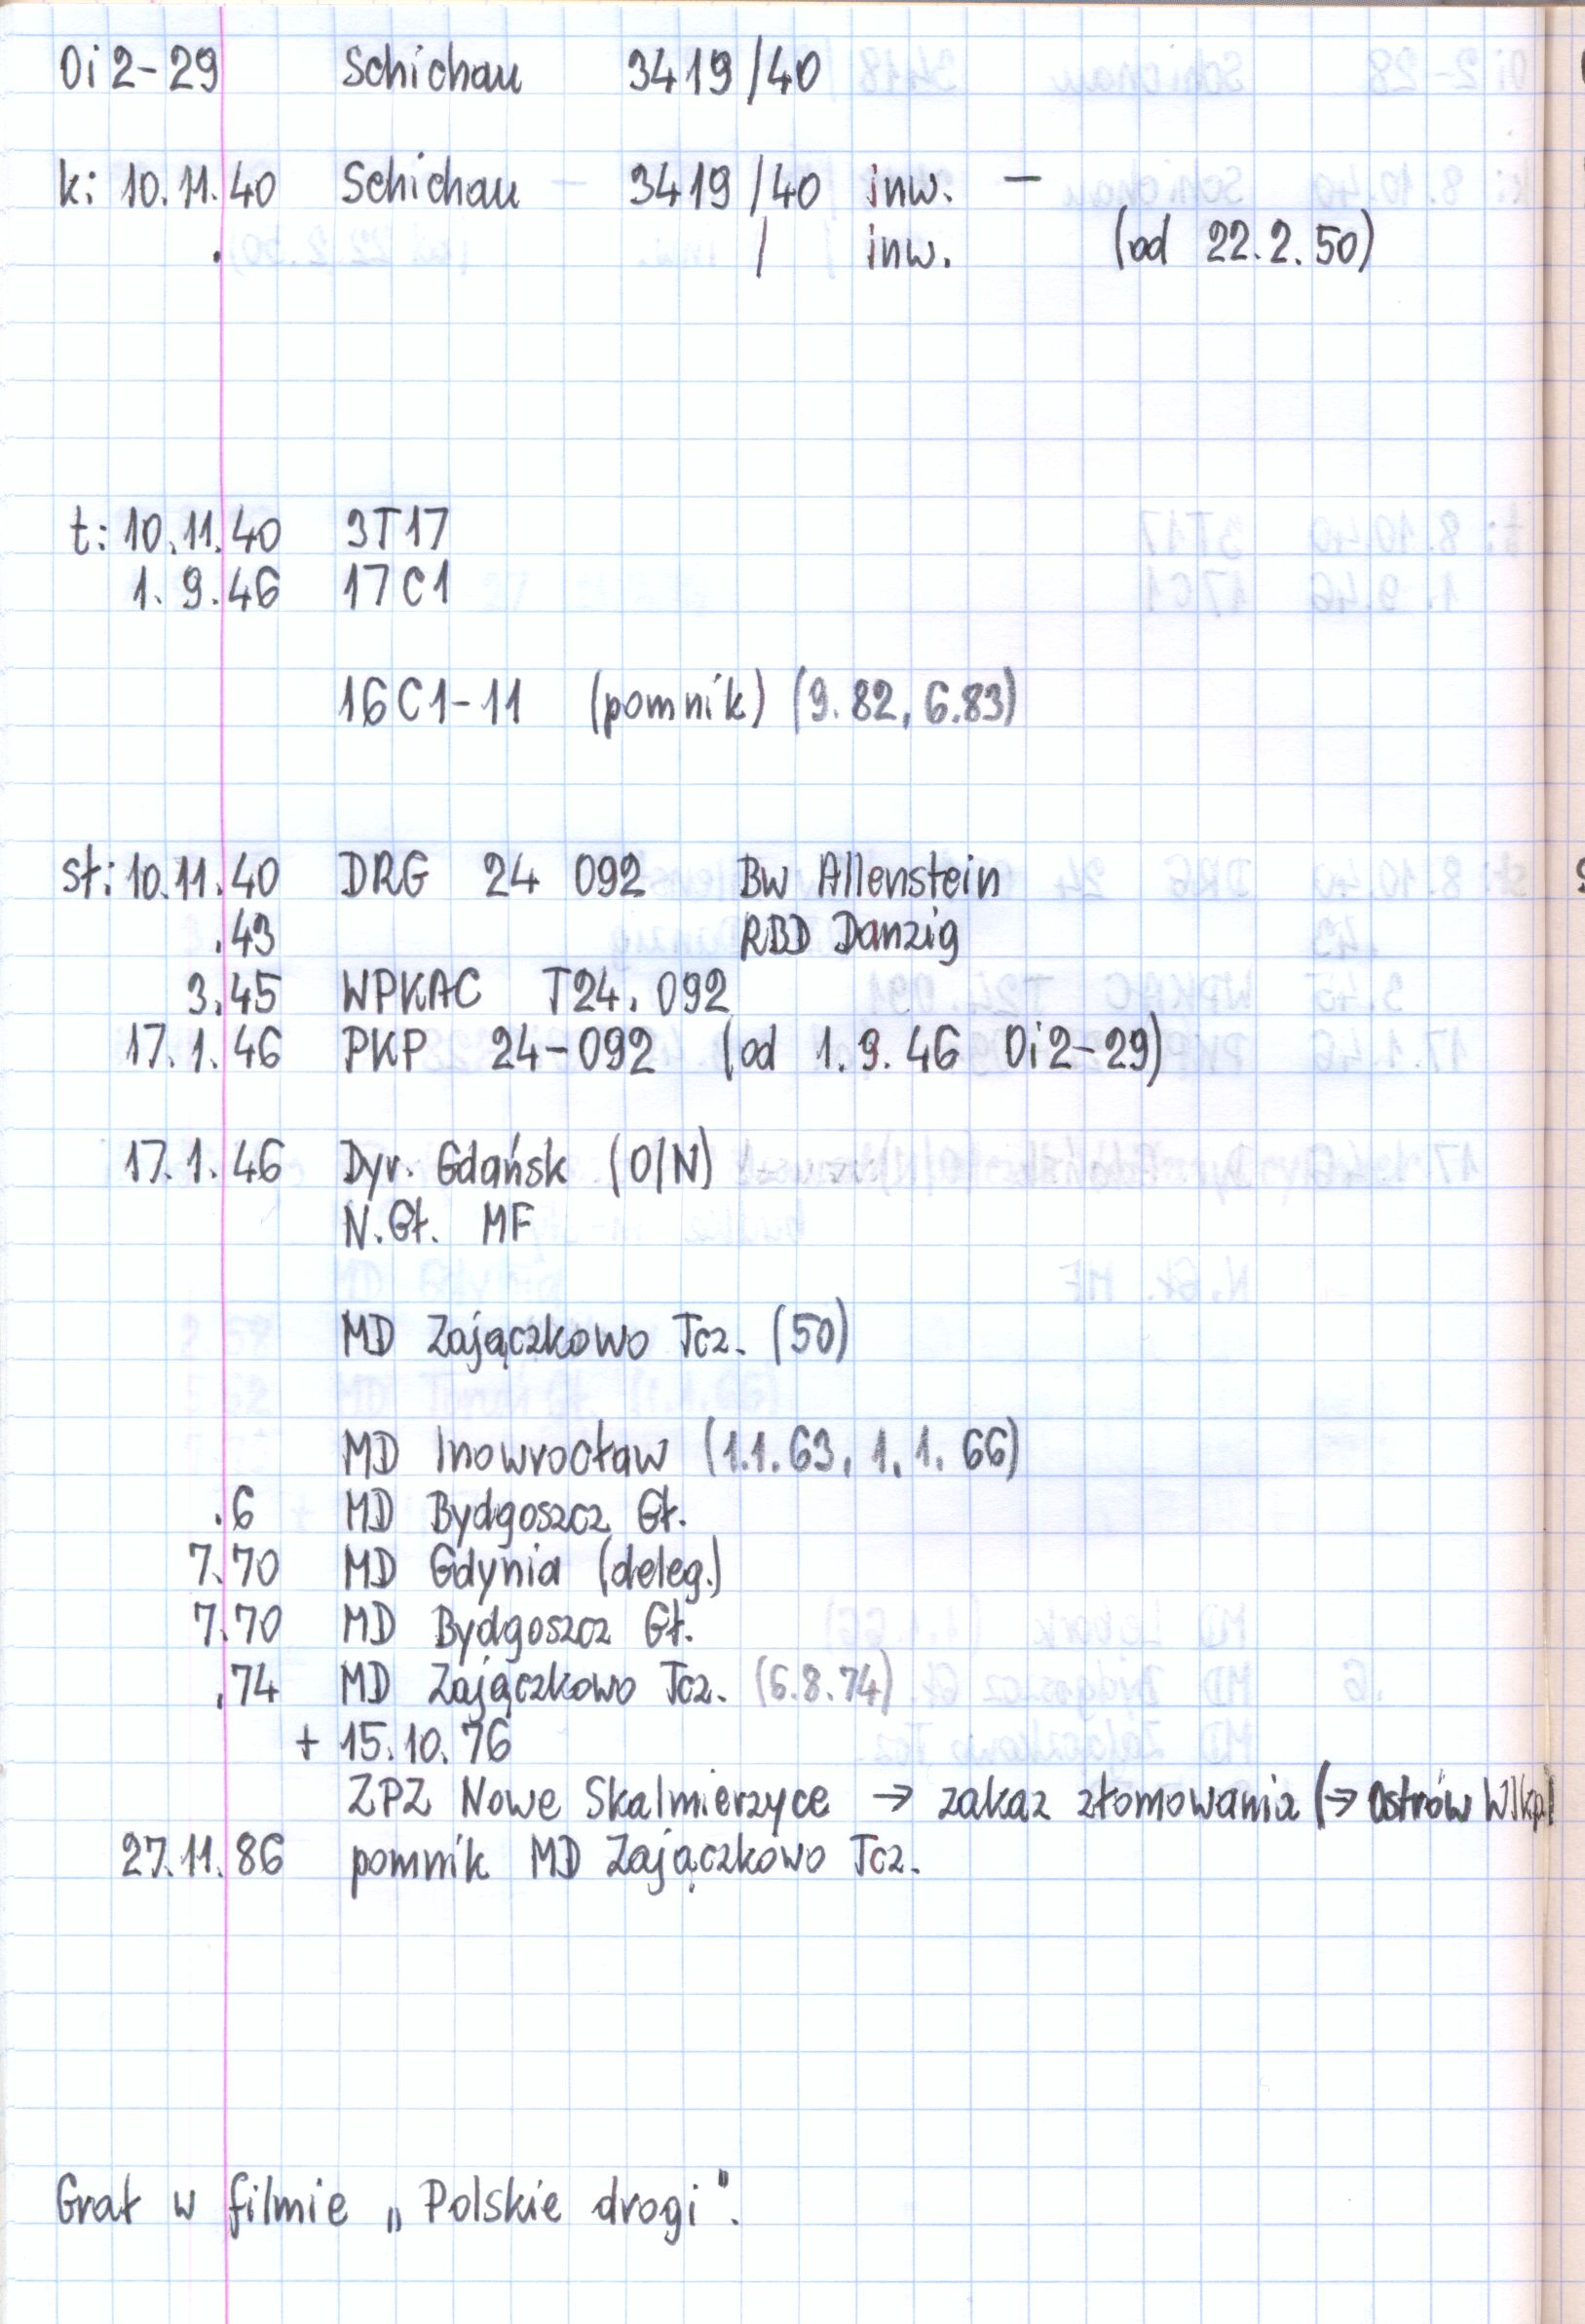 Oi2-29 Schichau 3419/40
k: 10.11.40 Schichau - 3419/40 inw. -
. / inw. (od 22.2.50)
t: 10.11.40 3T17
1.9.46 17C1
16C1-11 (pomnik) (9.82, 6.83)
st: 10.11.40 DRG 24 092 Bw Allenstein
.43 RBD Danzig
3.45 WPKAC T24.092
17.1.46 PKP 24-092 (od 1.9.46 Oi2-29)
17.1.46 Dyr. Gdańsk (O/N)
N.Gł. MF
MD Zajączkowo Tcz. (50)
MD Inowrocław (1.1.63, 1.1.66)
.6 MD Bydgoszcz Gł.
7.70 MD Gdynia (deleg.)
7.70 MD Bydgoszcz Gł.
.74 MD Zajączkowo Tcz. (6.8.74)
+ 15.10.76
ZPZ Nowe Skalmierzyce → zakaz złomowania (→ Ostrów Wlkp)
27.11.86 pomnik MD Zajączkowo Tcz.
Grał w filmie „Polskie drogi".